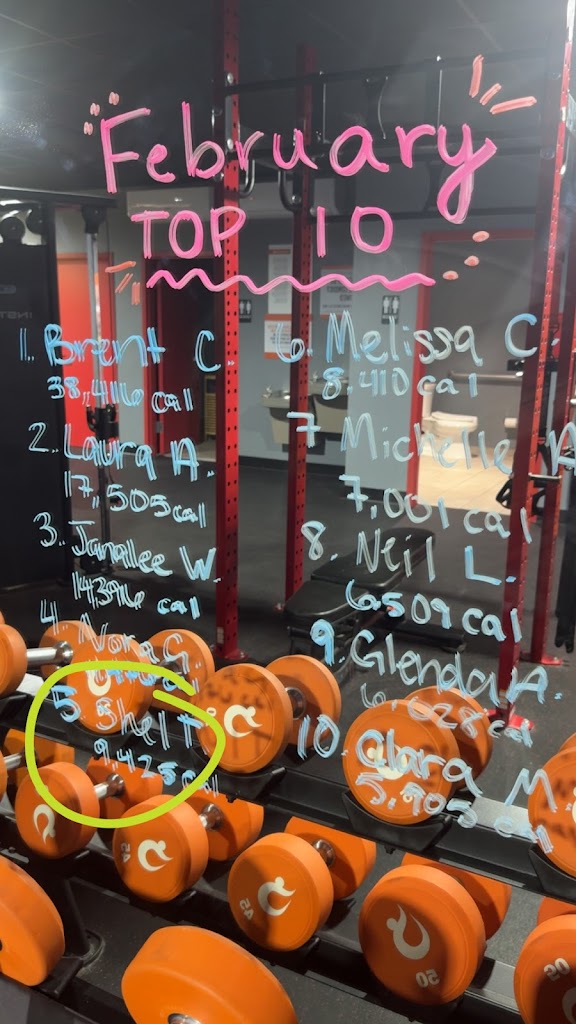 February
TOP 10
1. Brent C.
38,416 cal
2. Laura A.
17,505 cal
3. Janallee W.
14,396 cal
4. Nora G.
5. Shel T
9,425 cal
6. Melissa C.
8,410 cal
7 Michelle A
7,001 cal
8. Neil L.
6,509 cal
9. Glenda A.
6,028 cal
10. Clara M
5,905 cal
45
45
50